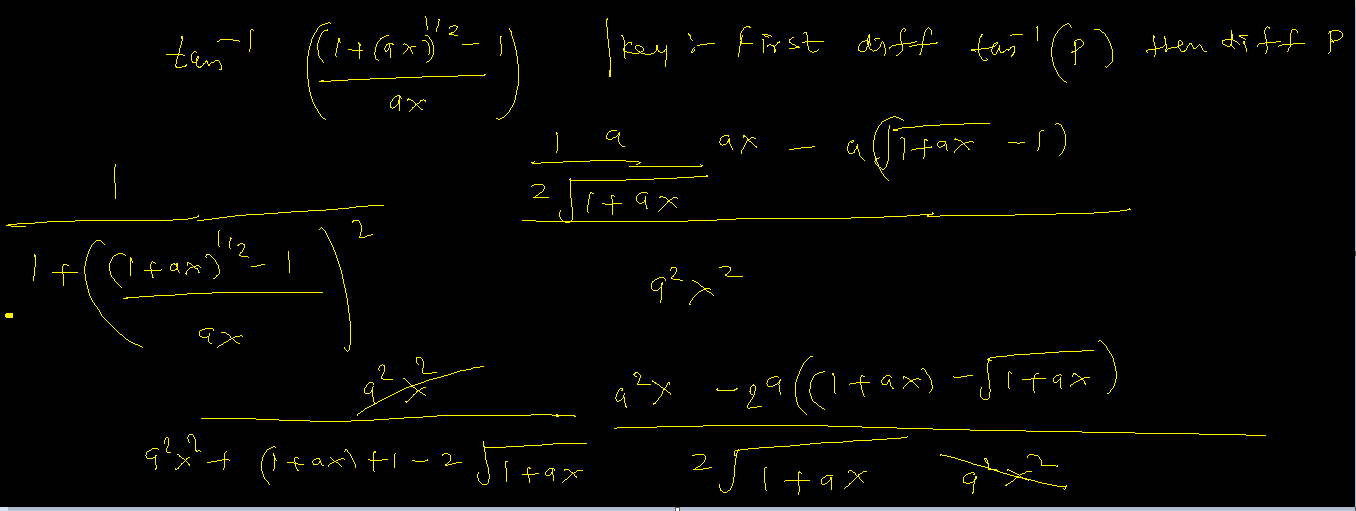 tan⁻¹ (((1+(ax))^(1/2) - 1)/(ax)) | key :- First diff tan⁻¹(p) then diff P
1/(1+(((1+ax)^(1/2) - 1)/(ax))²) ((1 a)/(2√(1+ax)) ax - a(√(1+ax) - 1))/(a²x²)
a²x²/(a²x² + (1+ax)+1-2√(1+ax)) (a²x - 2a((1+ax) - √(1+ax)))/(2√(1+ax) a²x²)